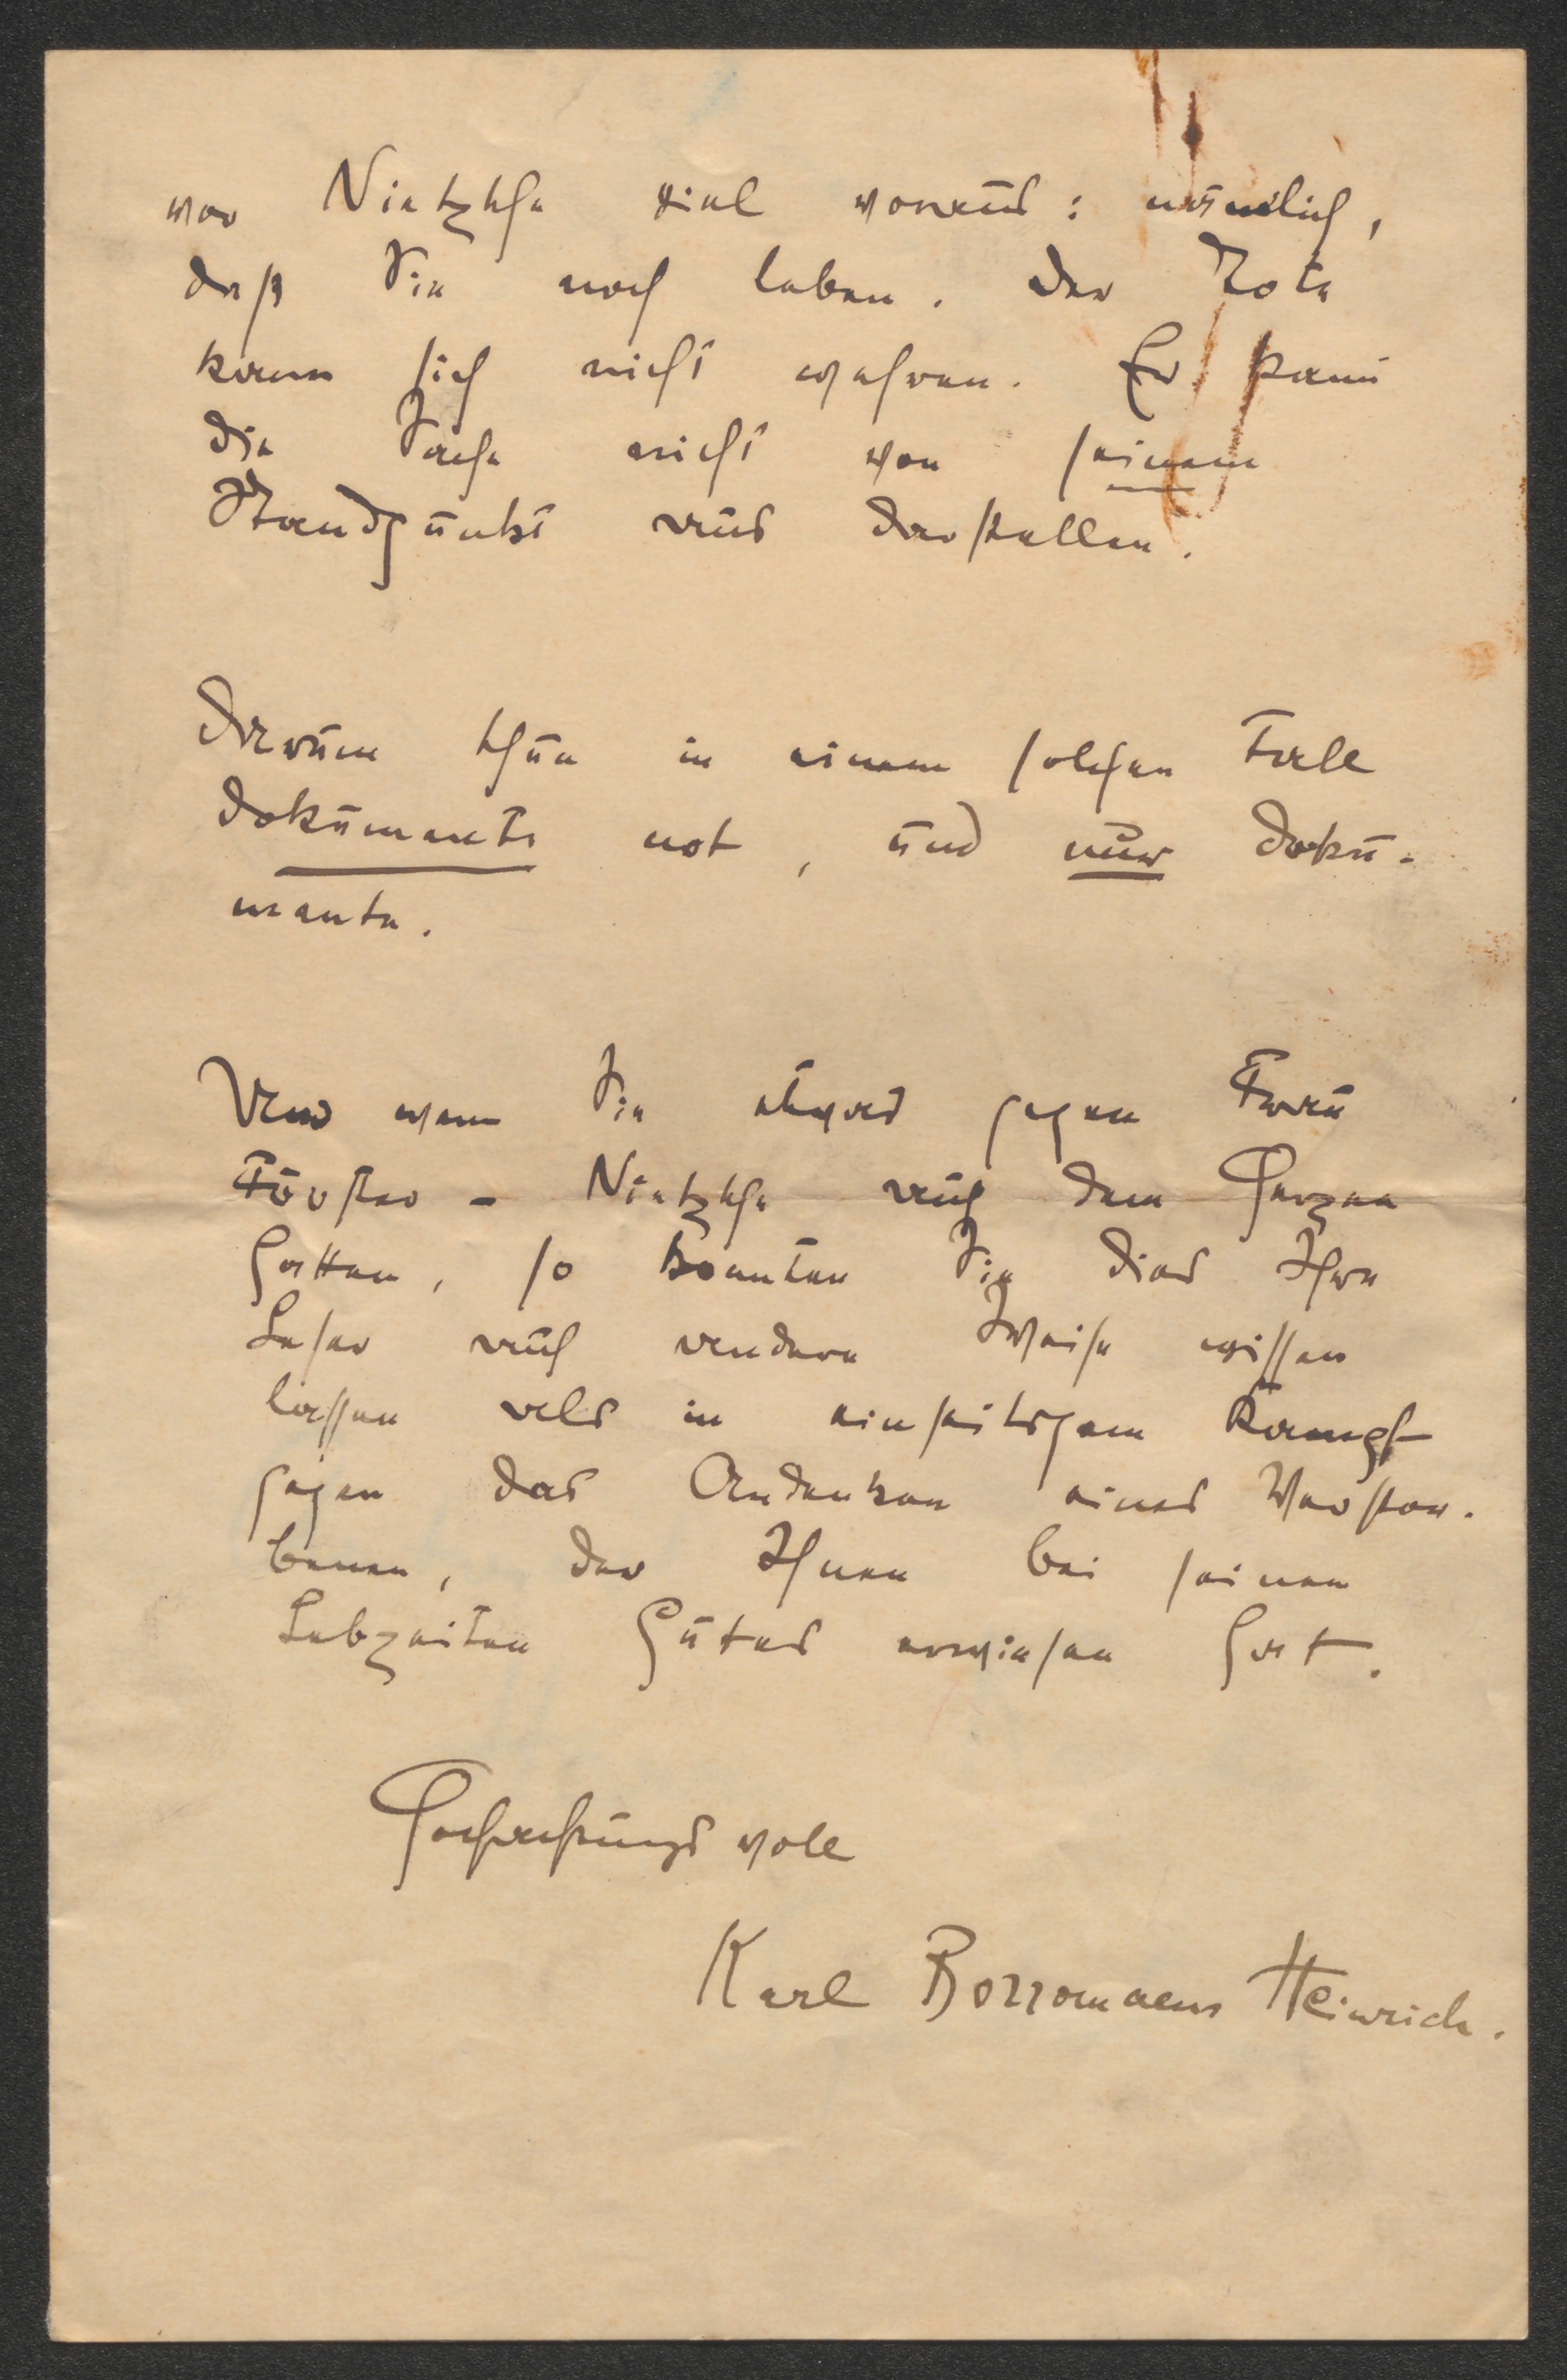 vor Nietzsche viel voraus: nämlich,
daß Sie noch leben. Der Tote
kann sich nicht wehren. Er kann
die Sache nicht von seinem
Standpunkt aus darstellen.
Darum thun in einem solchen Fall
Dokumente not, und nur Doku-
mente.
Und wenn Sie etwas gegen Frau
Förster-Nietzsche auf dem Herzen
hatten, so konnten Sie dies Ihre
Leser auf andere Weise wissen
lassen als in einseitigem Kampf
gegen das Andenken eines Verstor-
benen, der Ihnen bei seinen
Lebzeiten Gutes erwiesen hat.
Hochachtungsvoll
Karl Borromaeus Heinrich.